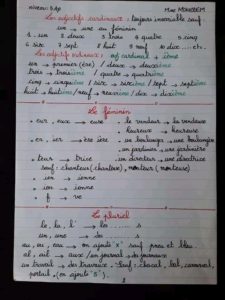 niveau: 5 Ap Mme MOKEDDEM
Les adjectifs cardinaux: toujours invariable sauf:
un → une au féminin
1. un 2 deux 3 trois 4 quatre 5. cinq
6 six 7 sept 8 huit 9 neuf 10 dix .... etc.
Les adjectifs ordinaux: adj cardinaux + ième
un → premier (ère) / deux → deuxième
trois → troisième / quatre → quatrième
cinq → cinquième / six → sixième / sept → septième
huit → huitième / neuf → neuvième / dix → dixième
Le féminin
eur, eux → euse: le vendeur → la vendeuse
heureux → heureuse
er, ier → ère ière: un boulanger → une boulangère
un jardinier → une jardinière
teur → trice: un directeur → une directrice
sauf: chanteur (chanteuse), menteur (menteuse)
ien → ienne
ion → ionne
f → ve
Le pluriel
le, la, l' → les ...... s
un, une → des ...... s
au, eu, eau → on ajoute "x" sauf pneu et bleu
al, ail → aux / un journal → des journaux
un travail → des travaux. Sauf: chacal, bal, carnaval,
portail, (on ajoute "s").